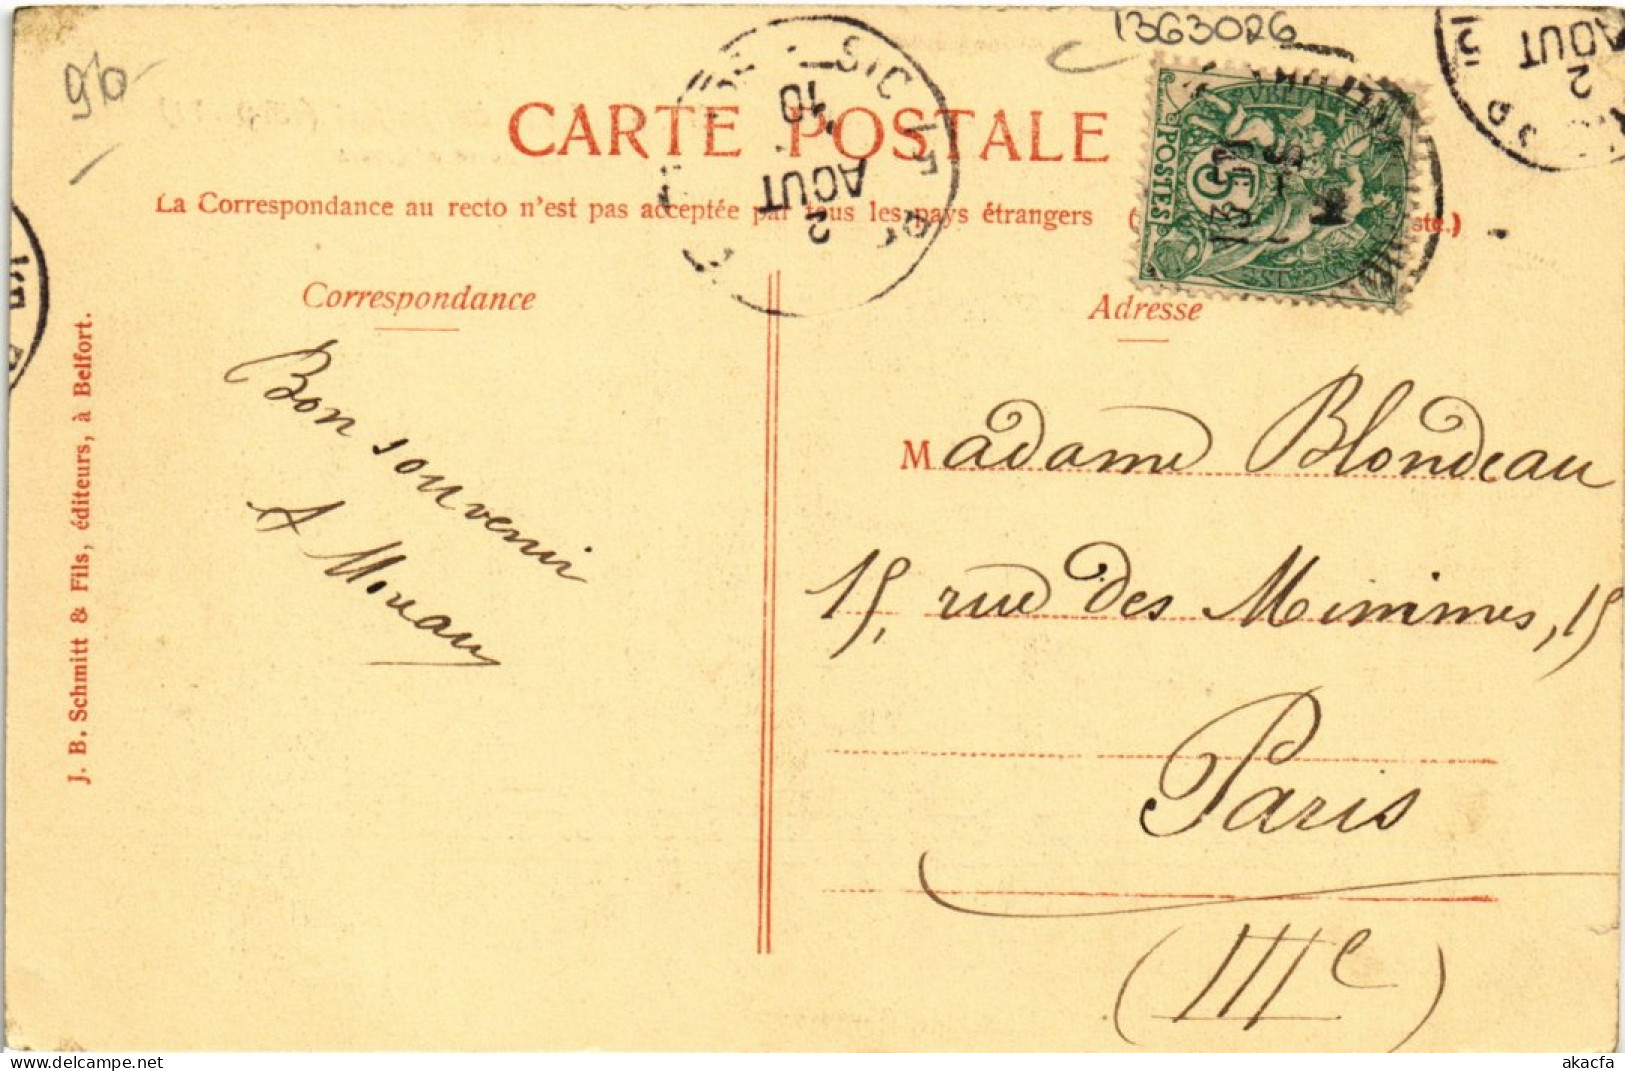 1363026
90
CARTE POSTALE
La Correspondance au recto n'est pas acceptée par tous les pays étrangers
ste.)
POSTES
5
10
AOUT
2
2
AOUT
Correspondance
Adresse
Bon souvenir
A Moreau
Madame Blondeau
15, rue des Minimes, 15
Paris
(IIIe)
J. B. Schmitt & Fils, éditeurs, à Belfort.
akacfa